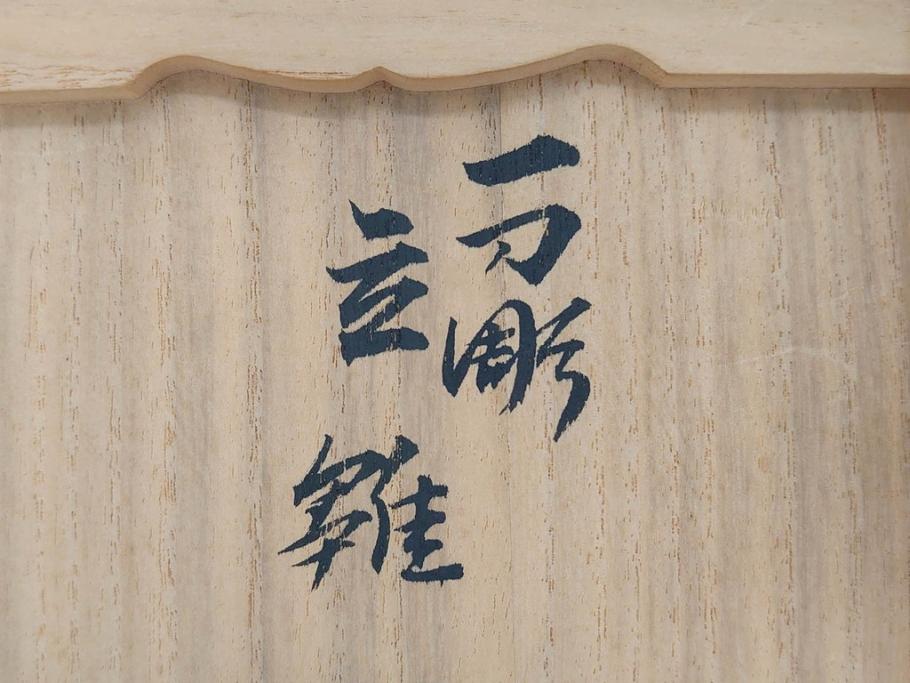 一刀彫
立雛